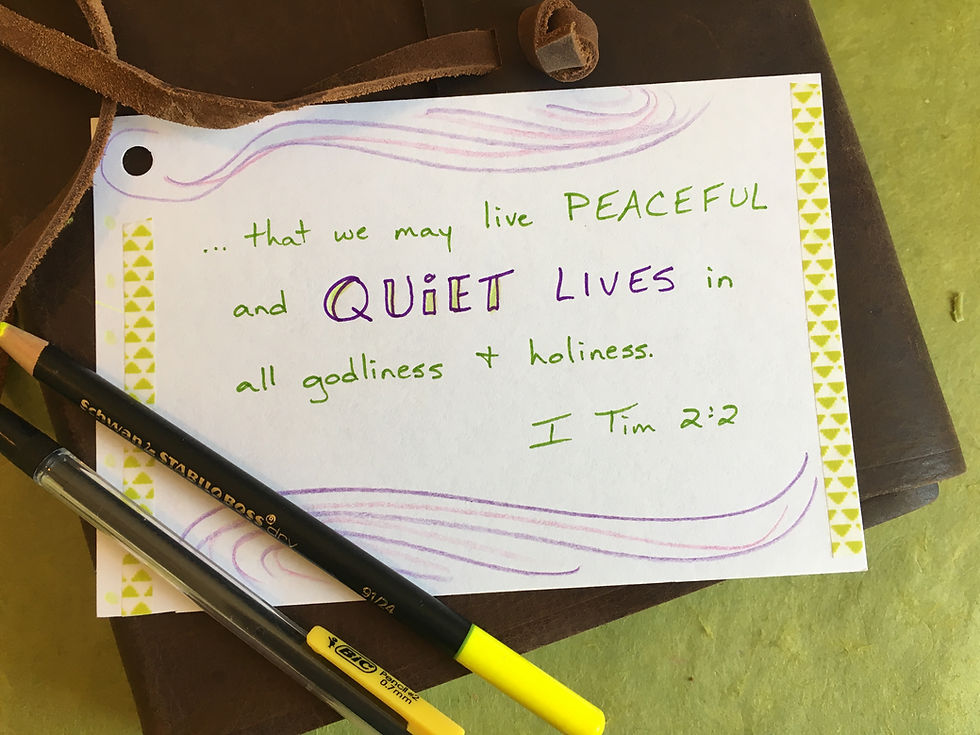 ... that we may live PEACEFUL
and QUiET LIVES in
all godliness + holiness.
I Tim 2:2
Schwan's STABILO BOSS® dry
91/24
BIC
Pencil #2
0.7mm